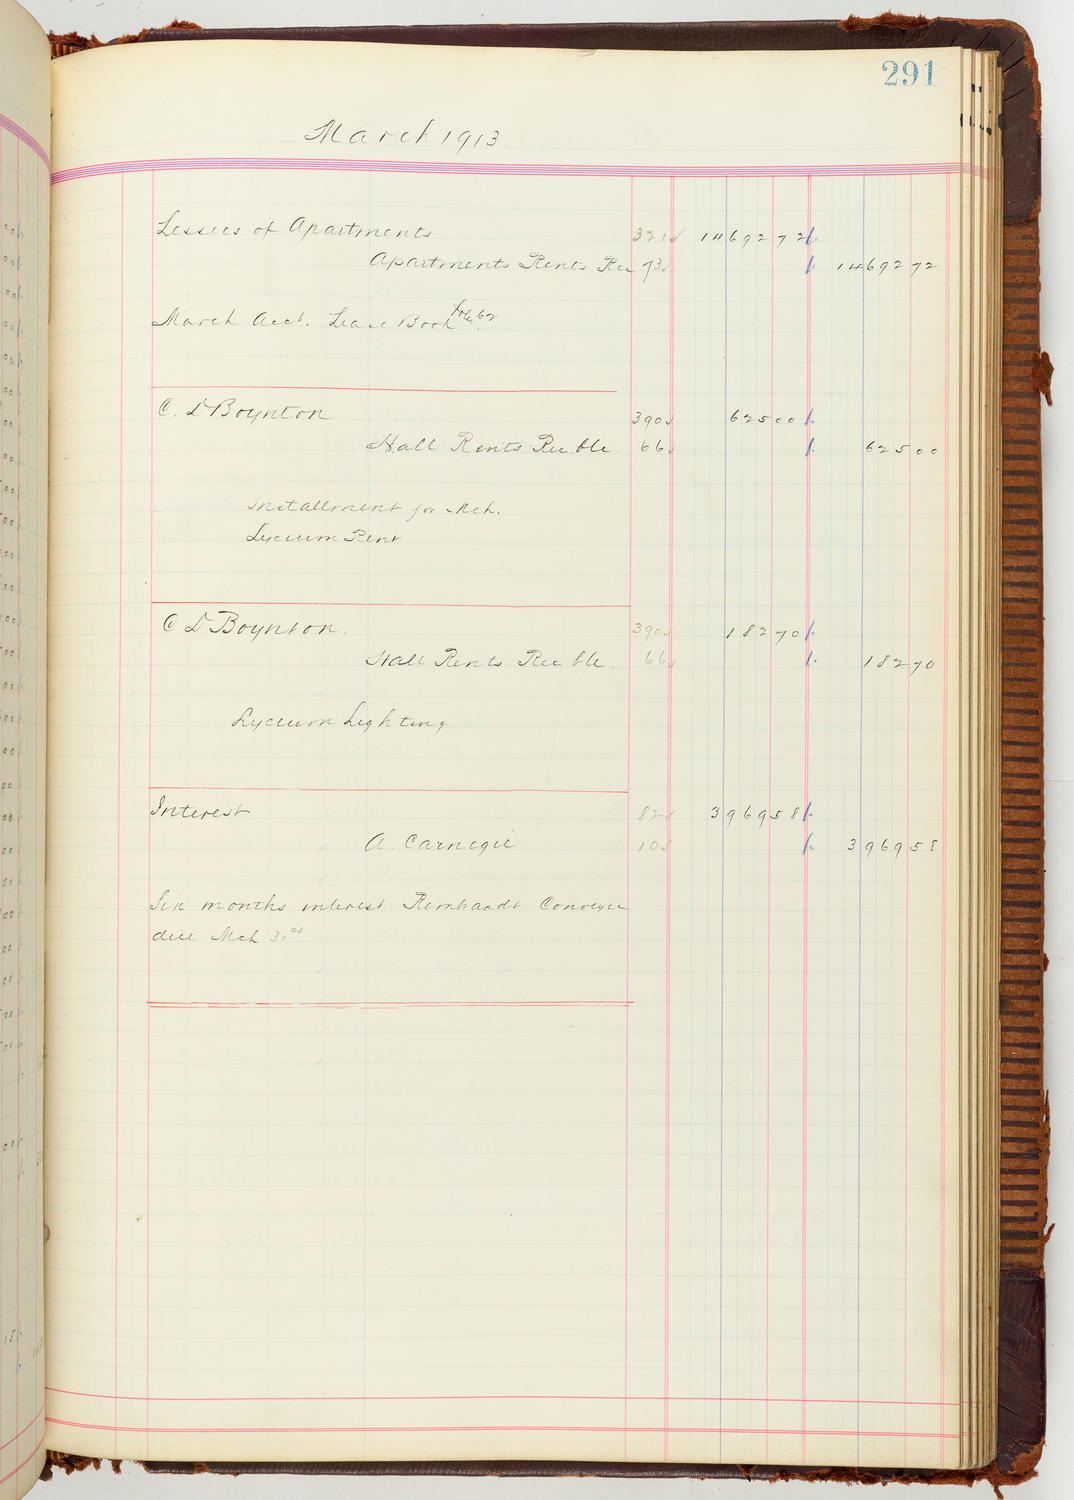 291
March 1913
Lessees of Apartments 321 14692 72
Apartments Rents Rec 73 14692 72
March Acct. Lease Book 62
C. D Boynton 390 625 00
Hall Rents Rec.ble. 66 625 00
Installment for Mch.
Lyceum Rent
C D Boynton. 390 182 70
Hall Rents Rec ble. 66 182 70
Lyceum Lighting
Interest 82 3969 58
A. Carnegie 10 3969 58
Six months interest Rembrandt
due Mch 31st